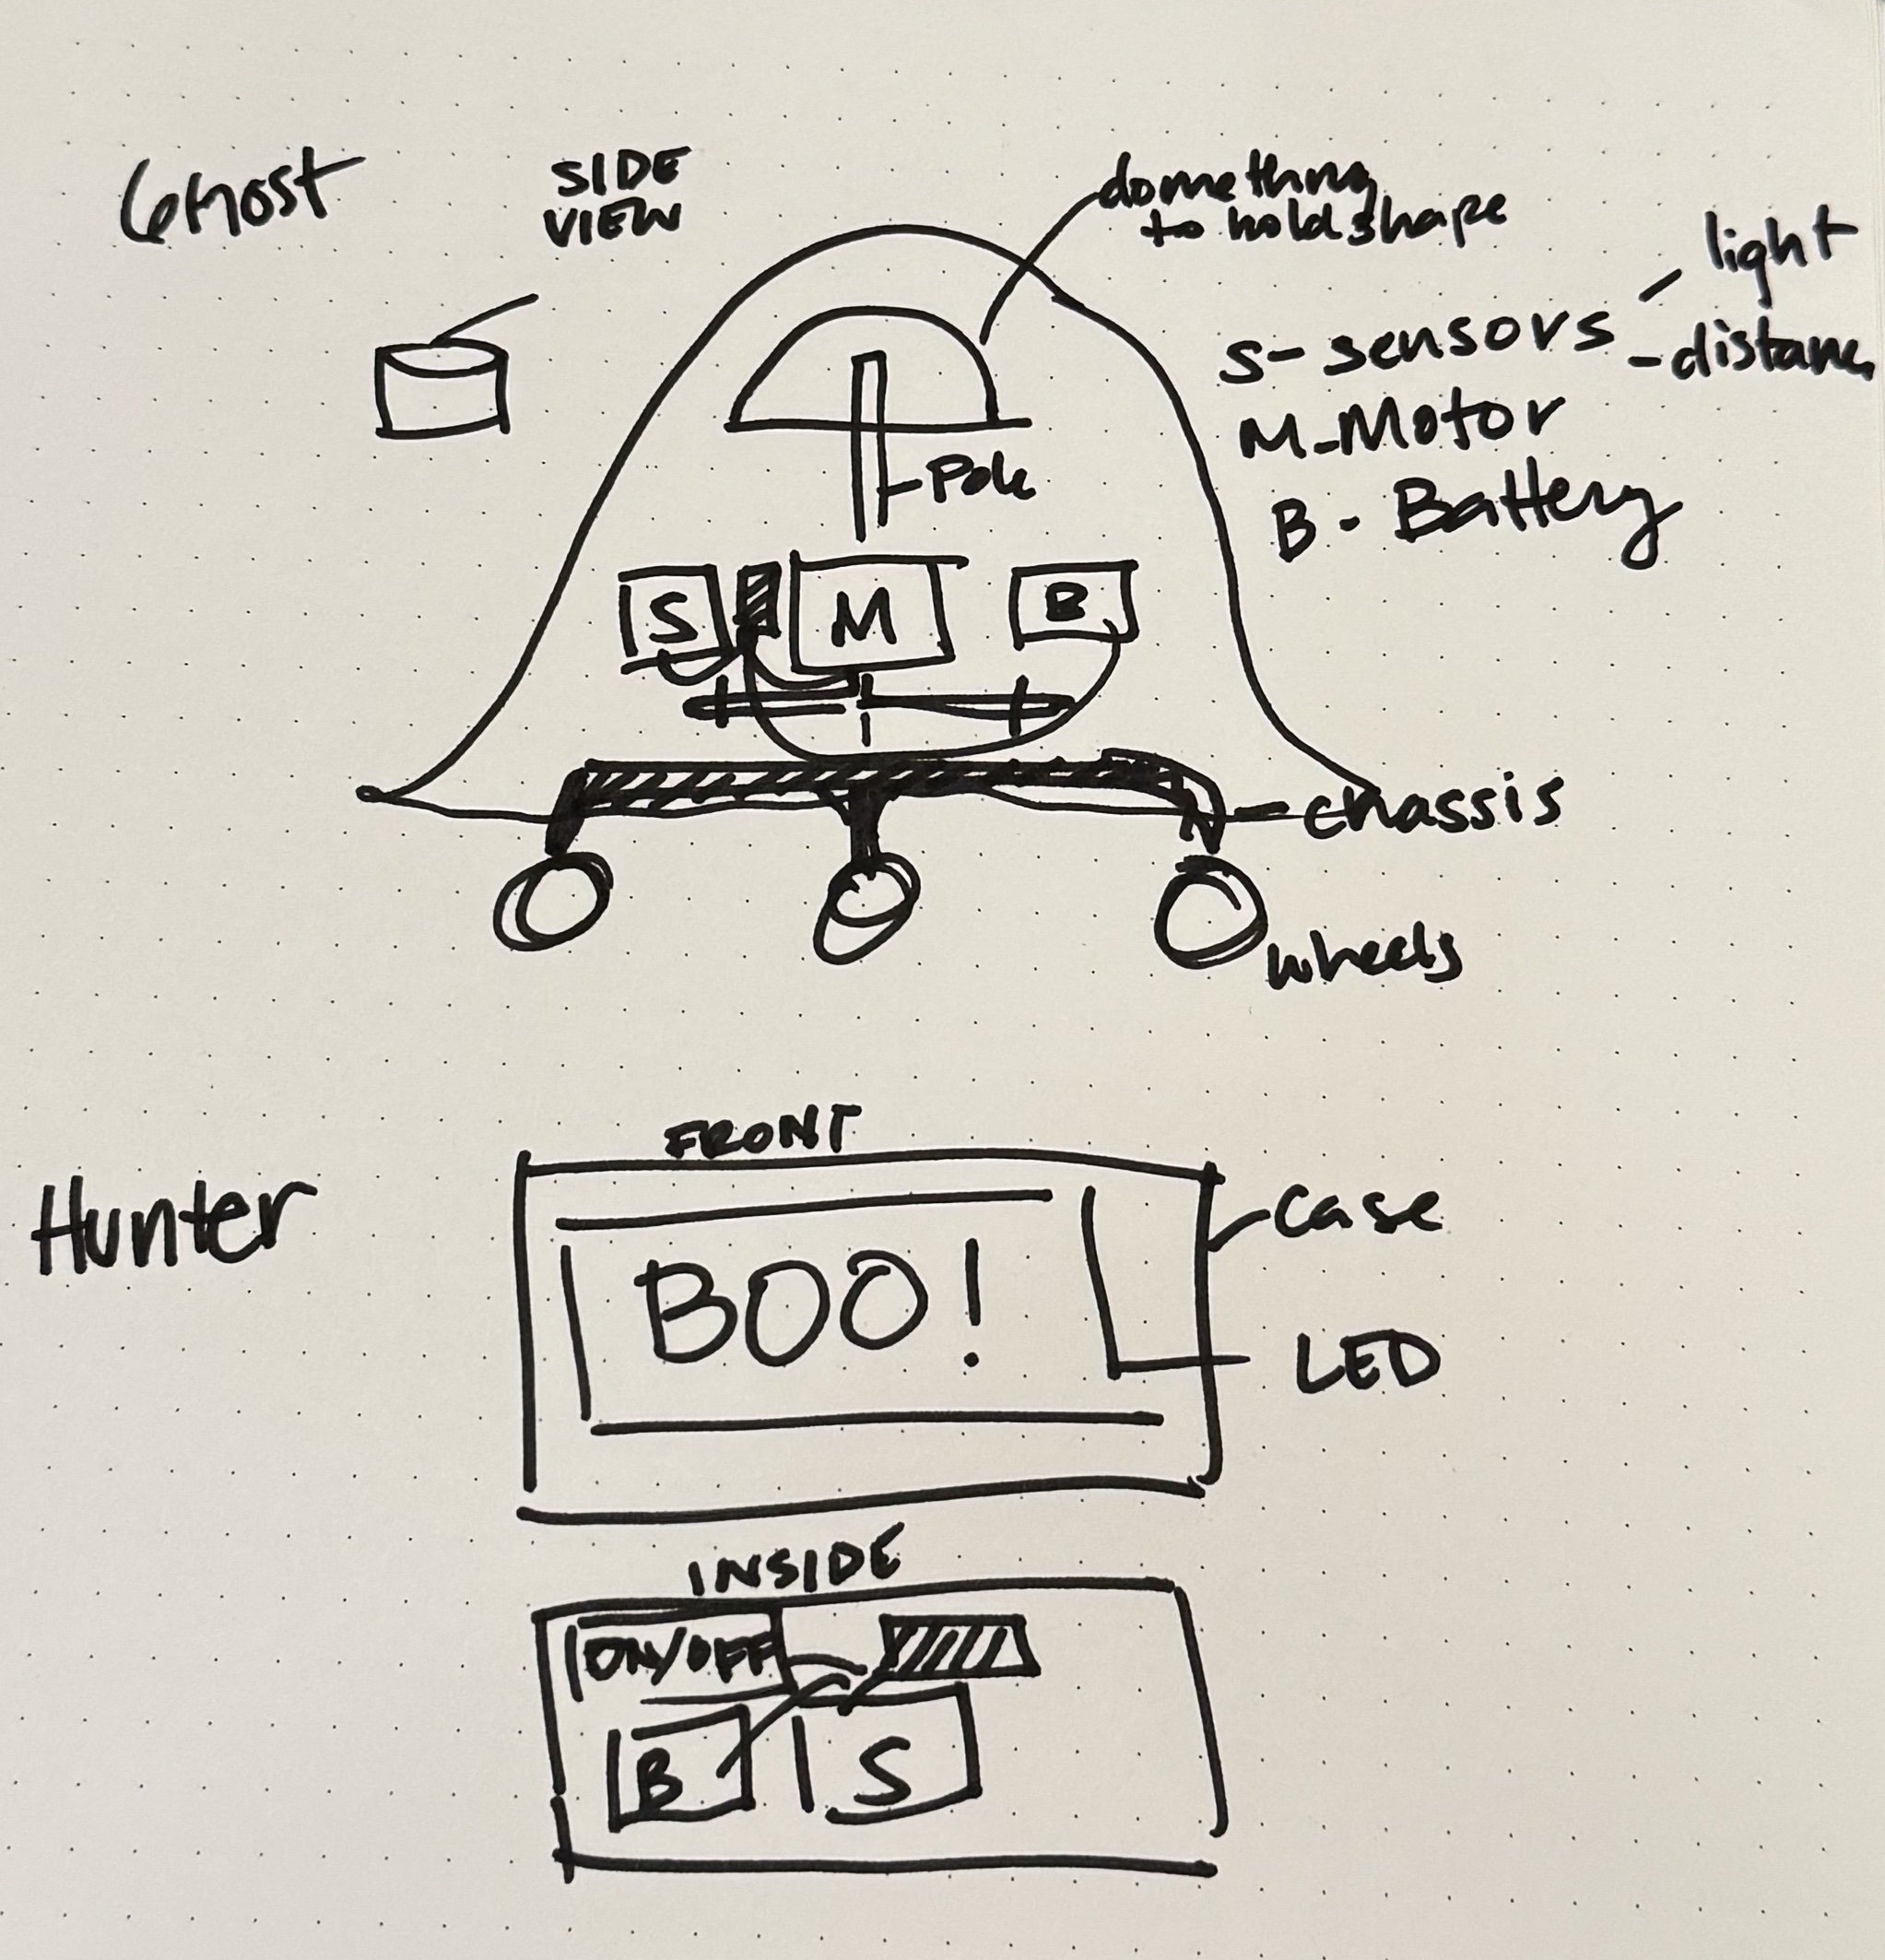 Ghost
SIDE
VIEW
domething
to hold shape
light
S- sensors
- distance
M - Motor
B - Battery
Pole
S
M
B
chassis
wheels
Hunter
FRONT
BOO!
case
LED
INSIDE
ON/OFF
B
S